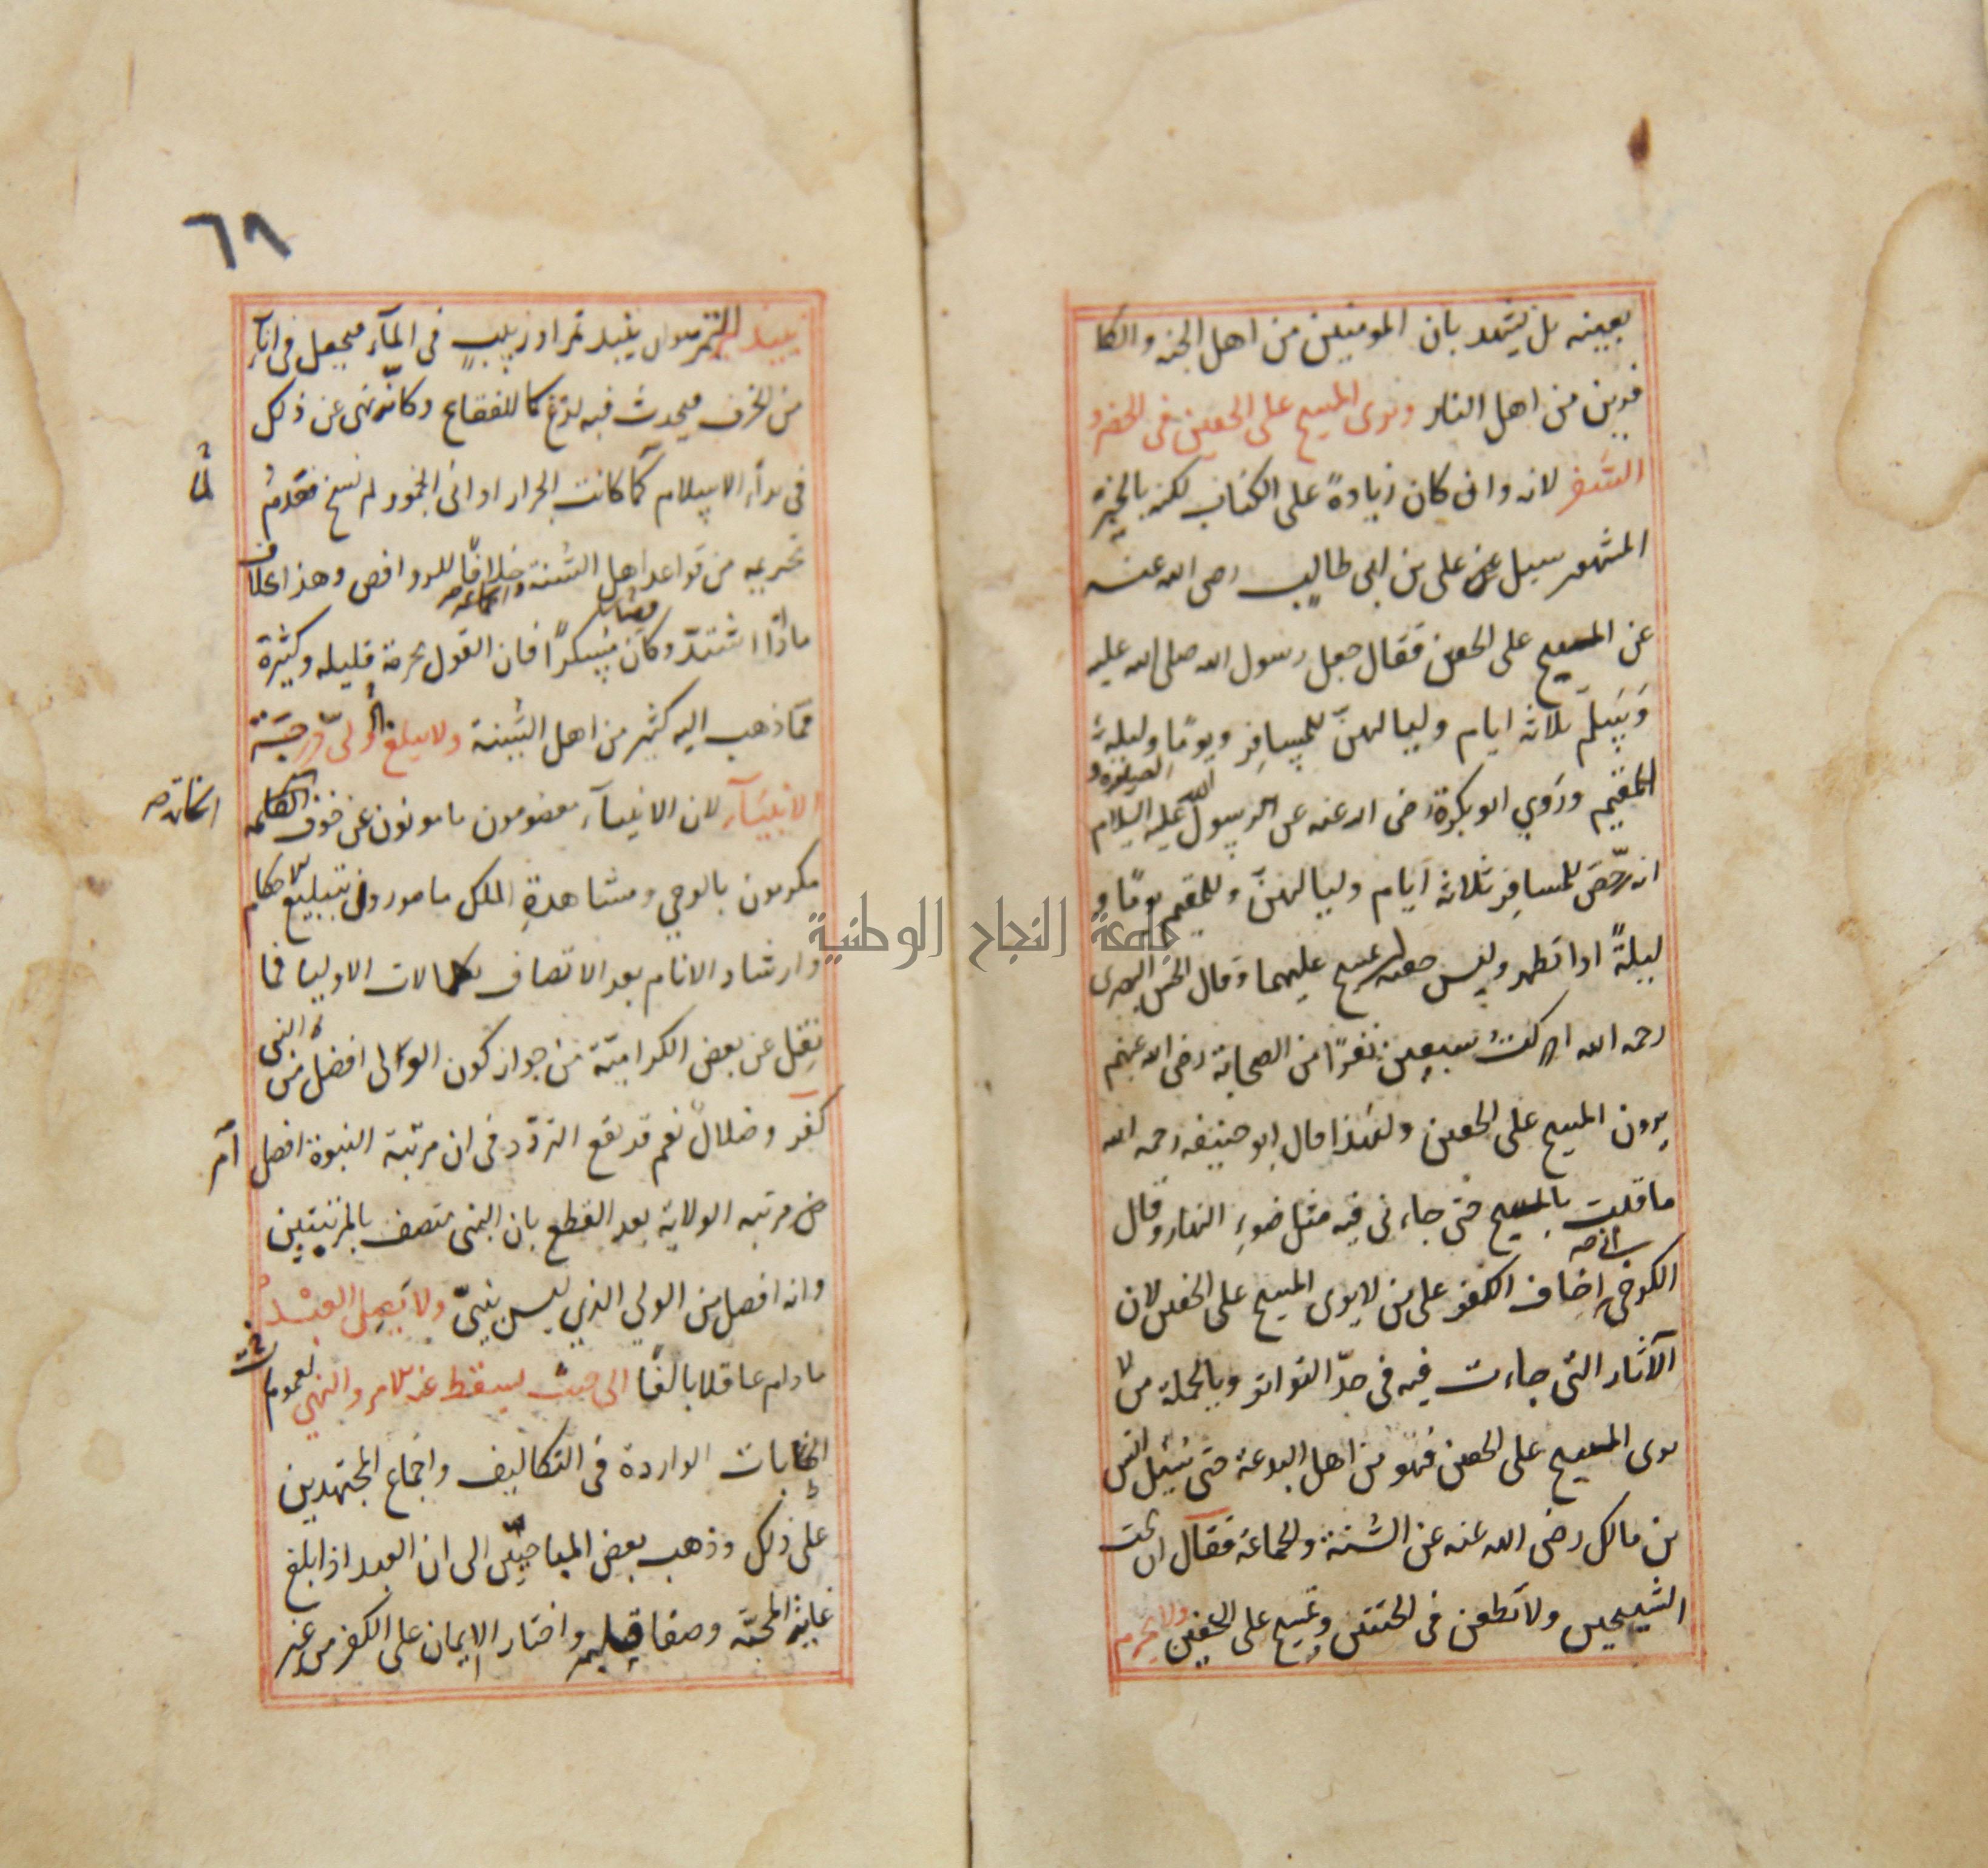 بعينه بل نشهد بان المومنين من اهل الجنة والكا
فرين من اهل النار ونرى المسح على الخفين فى الحضر و
السفر لانه وان كان زيادةً على الكتاب لكنه بالخبر
المشهور سيل عن على بن ابى طالب رضى الله عنه
عن المسح على الخفين فقال جعل رسول الله صلى الله عليه
وَسَلَّم ثلاثه ايام ولياليهنّ للمسافِرِ ويومًا وليلة
للمقيم ورَوي ابو بكرة رضى الله عنه عن الرسول عليه السلام
انه رخّصَ للمسافِر ثلاثه ايام ولياليهنّ وللمقيم يومًا و
ليلةً اذا تطهر ولبس خفيه ان يمسح عليهما وقال الحسن البصرى
رحمه الله ادركتُ سبعين نفرًا من الصحابة رضى الله عنهم
يرون المسح على الخفين ولهذا قال ابو حنيفه رحمه الله
ما قلت بالمسح حتى جاءنى فيه مثل ضوءِ النهار وقال
الكرخى اخاف الكفر على من لا يرى المسح على الخفين لان
الآثار التى جاءت فيه فى حدّ التواتر وبالجملة من لا
يرى المسح على الخفين فهو من اهل البدعة حتى سُئِل انس
بن مالك رضى الله عنه عن السُّنة والجماعة فقال ان تحب
الشيخين ولا تطعن فى الختنين وتمسح على الخفين ولا نحرم
٦٨
نبيذ التمر هو ان ينبذ تمر او زبيبٍ فى المآء فيجعل فى انآءِ
من الخزف فيحدث فيه لذع كما للفقاع وكانّه نهى عن ذلك
فى بدأ الاسلام لما كانت الجرار اوانى الخمور ثم نسخ فعَدمُ
تحريمه من قواعد اهل السُّنة والجماعة خلافًا للروافض وهذا بخلاف
ما اذا اشتدّ وكان مُسكرًا فان القول بحرمة قليله وكثيرة
ممّا ذهب اليه كثير من اهل السُّنة ولا يبلغ الولىّ درجة
الانبيآءِ لان الانبيآء معصومون مامونون عن خوف الخاتمة
مكرمون بالوحي ومشاهدةِ الملك مامورون بتبليغ الاحكام
وارشاد الانام بعد الاتصاف بكمالات الاوليا فما
نقل عن بعض الكراميّة من جواز كون الولى افضل من النبى
كفر وضلالٌ نعم قد يقع التردّد فى ان مرتبة النبوة افضل ام
من مرتبه الولاية بعد القطع بان النبى متصف بالمرتبتين
وانه افضل من الولي الذي ليس بنبىّ ولا يَصِل العَبْدُ
ما دام عاقلا بالغًا الى حيث يسقط عنه الامر والنهي لعموم
الخطابات الواردة فى التكاليف واجماع المجتهدين
على ذلك وذهب بعض المباحيّين الى ان العبد اذا بلغ
غاية المحبّة وصفا قلبه واختار الايمان على الكفر من غير
جامعة النجاح الوطنية